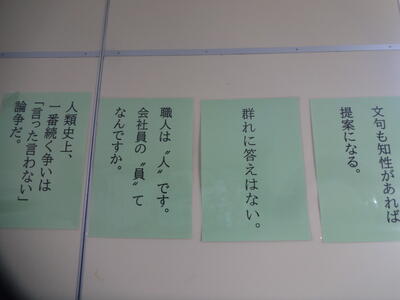 文句も知性があれば
提案になる。
群れに答えはない。
職人は〝人〟です。
会社員の〝員〟て
なんですか。
人類史上、
一番続く争いは
「言った言わない」
論争だ。